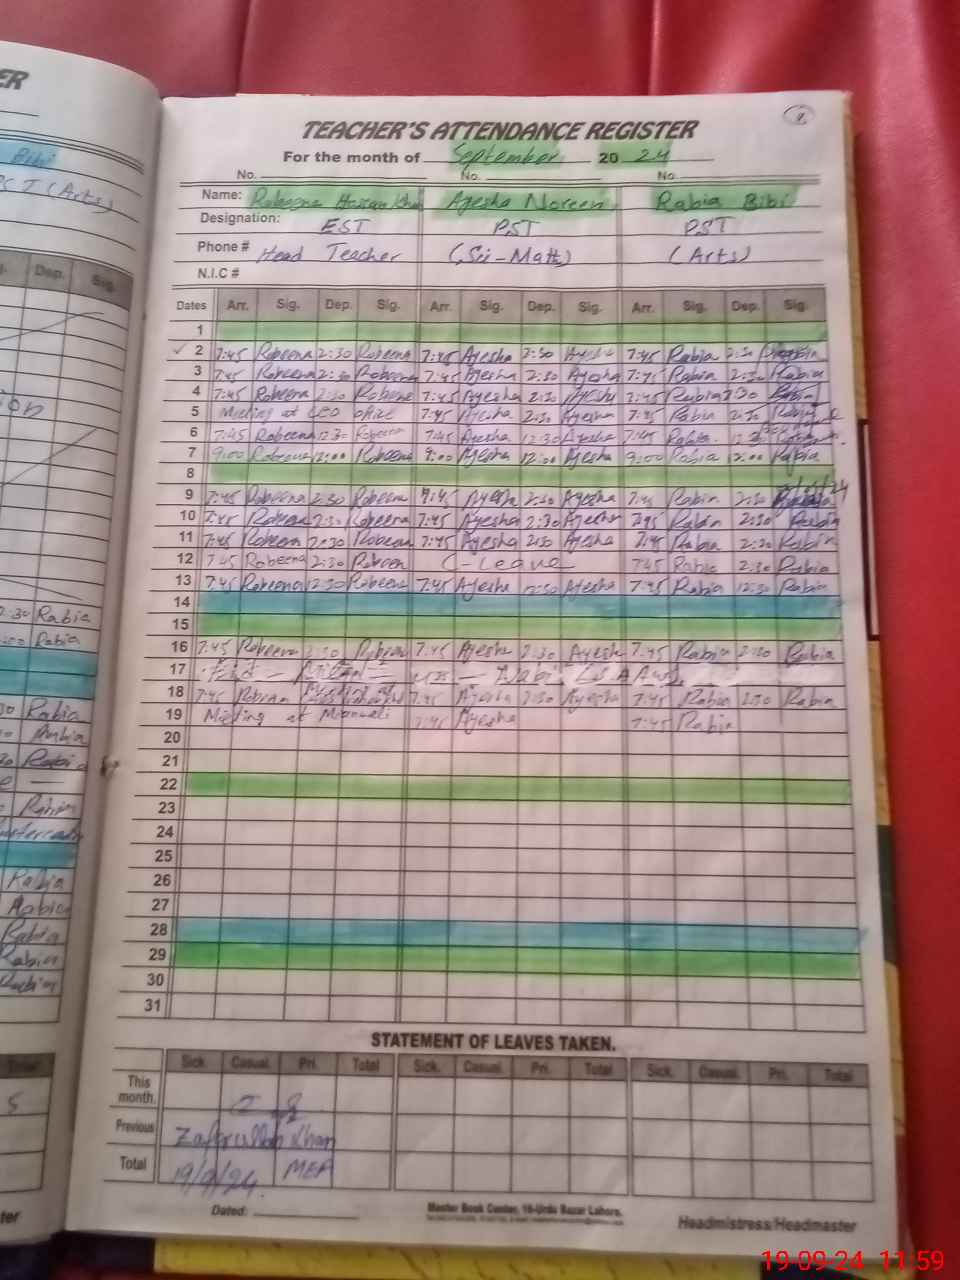 ER
TEACHER'S ATTENDANCE REGISTER
For the month of September 20 24
No. No. No.
Name: Robeena Hassan Khan Ayesha Noreen Rabia Bibi
Designation: EST PST PST
Phone # Head Teacher (Sci-Math) (Arts)
N.I.C #
Dates Arr. Sig. Dep. Sig. Arr. Sig. Dep. Sig. Arr. Sig. Dep. Sig.
1
2 7:45 Robeena 2:30 Robeena 7:45 Ayesha 2:30 Ayesha 7:45 Rabia 2:30
3 7:45 Robeena 2:30 Robeena 7:45 Ayesha 2:30 Ayesha 7:45 Rabia 2:30 Rabia
4 7:45 Robeena 2:30 Robeena 7:45 Ayesha 2:30 Ayesha 7:45 Rabia 2:30 Rabia
5 Meeting at CEO office 7:45 Ayesha 2:30 Ayesha 7:45 Rabia 2:30 Rabia
6 7:45 Robeena 12:30 Robeena 7:45 Ayesha 12:30 Ayesha 7:45 Rabia
7 9:00 Robeena 12:00 Robeena 9:00 Ayesha 12:00 Ayesha 9:00 Rabia 12:00 Rabia
8
9 7:45 Robeena 2:30 Robeena 7:45 Ayesha 2:30 Ayesha 7:45 Rabia 2:30
10 7:45 Robeena 2:30 Robeena 7:45 Ayesha 2:30 Ayesha 7:45 Rabia 2:30 Rabia
11 7:45 Robeena 2:30 Robeena 7:45 Ayesha 2:30 Ayesha 7:45 Rabia 2:30 Rabia
12 7:45 Robeena 2:30 Robeena C-Leave 7:45 Rabia 2:30 Rabia
13 7:45 Robeena 12:30 Robeena 7:45 Ayesha 12:30 Ayesha 7:45 Rabia 12:30 Rabia
14
15
16 7:45 Robeena 2:30 Robeena 7:45 Ayesha 2:30 Ayesha 7:45 Rabia 2:30 Rabia
17 Eid Milad un Nabi (S.A.A.W)
18 7:45 Robeena 7:45 Ayesha 2:30 Ayesha 7:45 Rabia 2:30 Rabia
19 Meeting at Mianwali 7:45 Ayesha 7:45 Rabia
20
21
22
23
24
25
26
27
28
29
30
31
STATEMENT OF LEAVES TAKEN.
Sick. Casual. Pri. Total Sick. Casual. Pri. Total Sick. Casual. Pri. Total
This month.
Previous Zafarullah Khan
Total 19/9/24 MEA
Dated: Master Book Center, 16-Urdu Bazar Lahore.
Headmistress/Headmaster
19-09-24 11:59